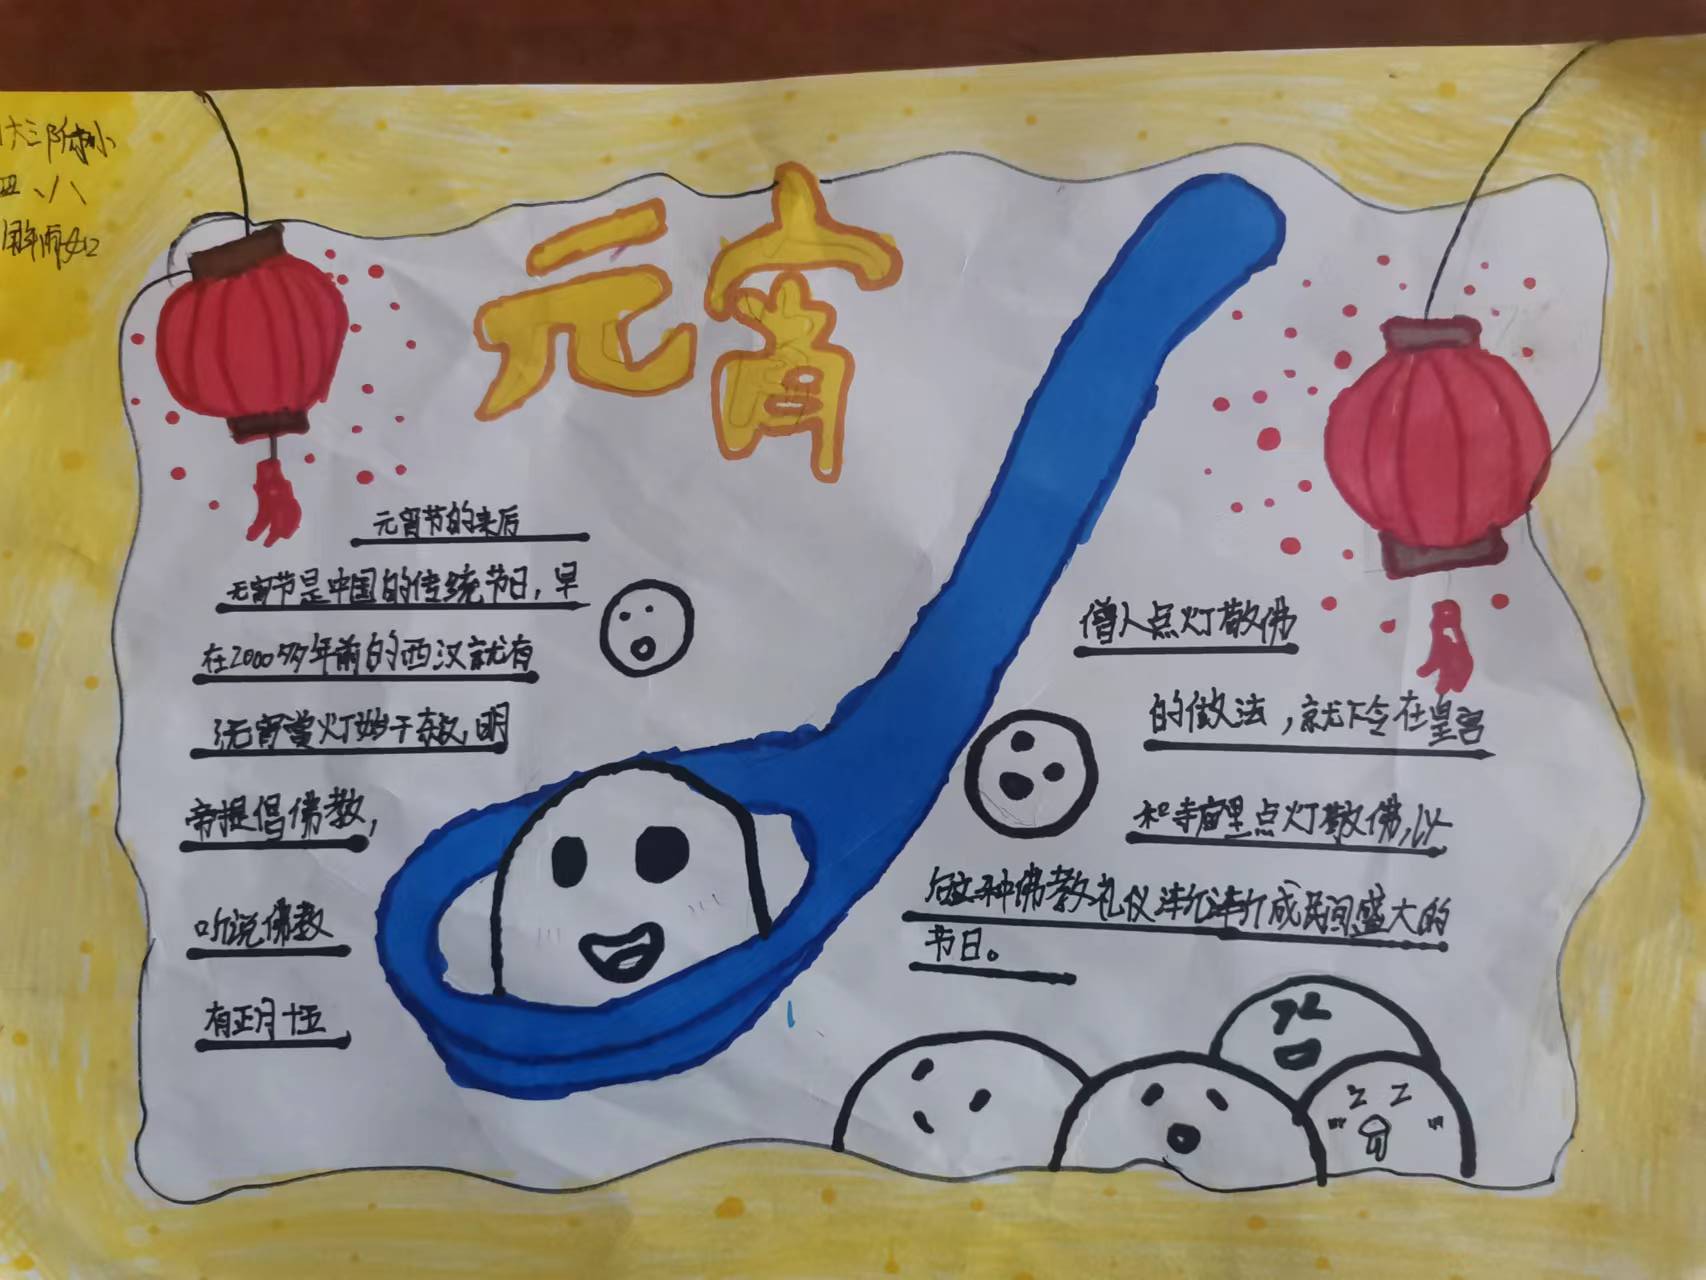 大三附小
四、八
元宵
元宵节的来后
元宵节是中国的传统节日，早
在2000多年前的西汉就有
元宵赏灯始于 明
帝提倡佛教，
听说佛教
有正月十五
僧人点灯敬佛
的做法，就下令在皇宫
和寺庙里点灯敬佛，以
后这种佛教礼仪渐渐成民间盛大的
节日。